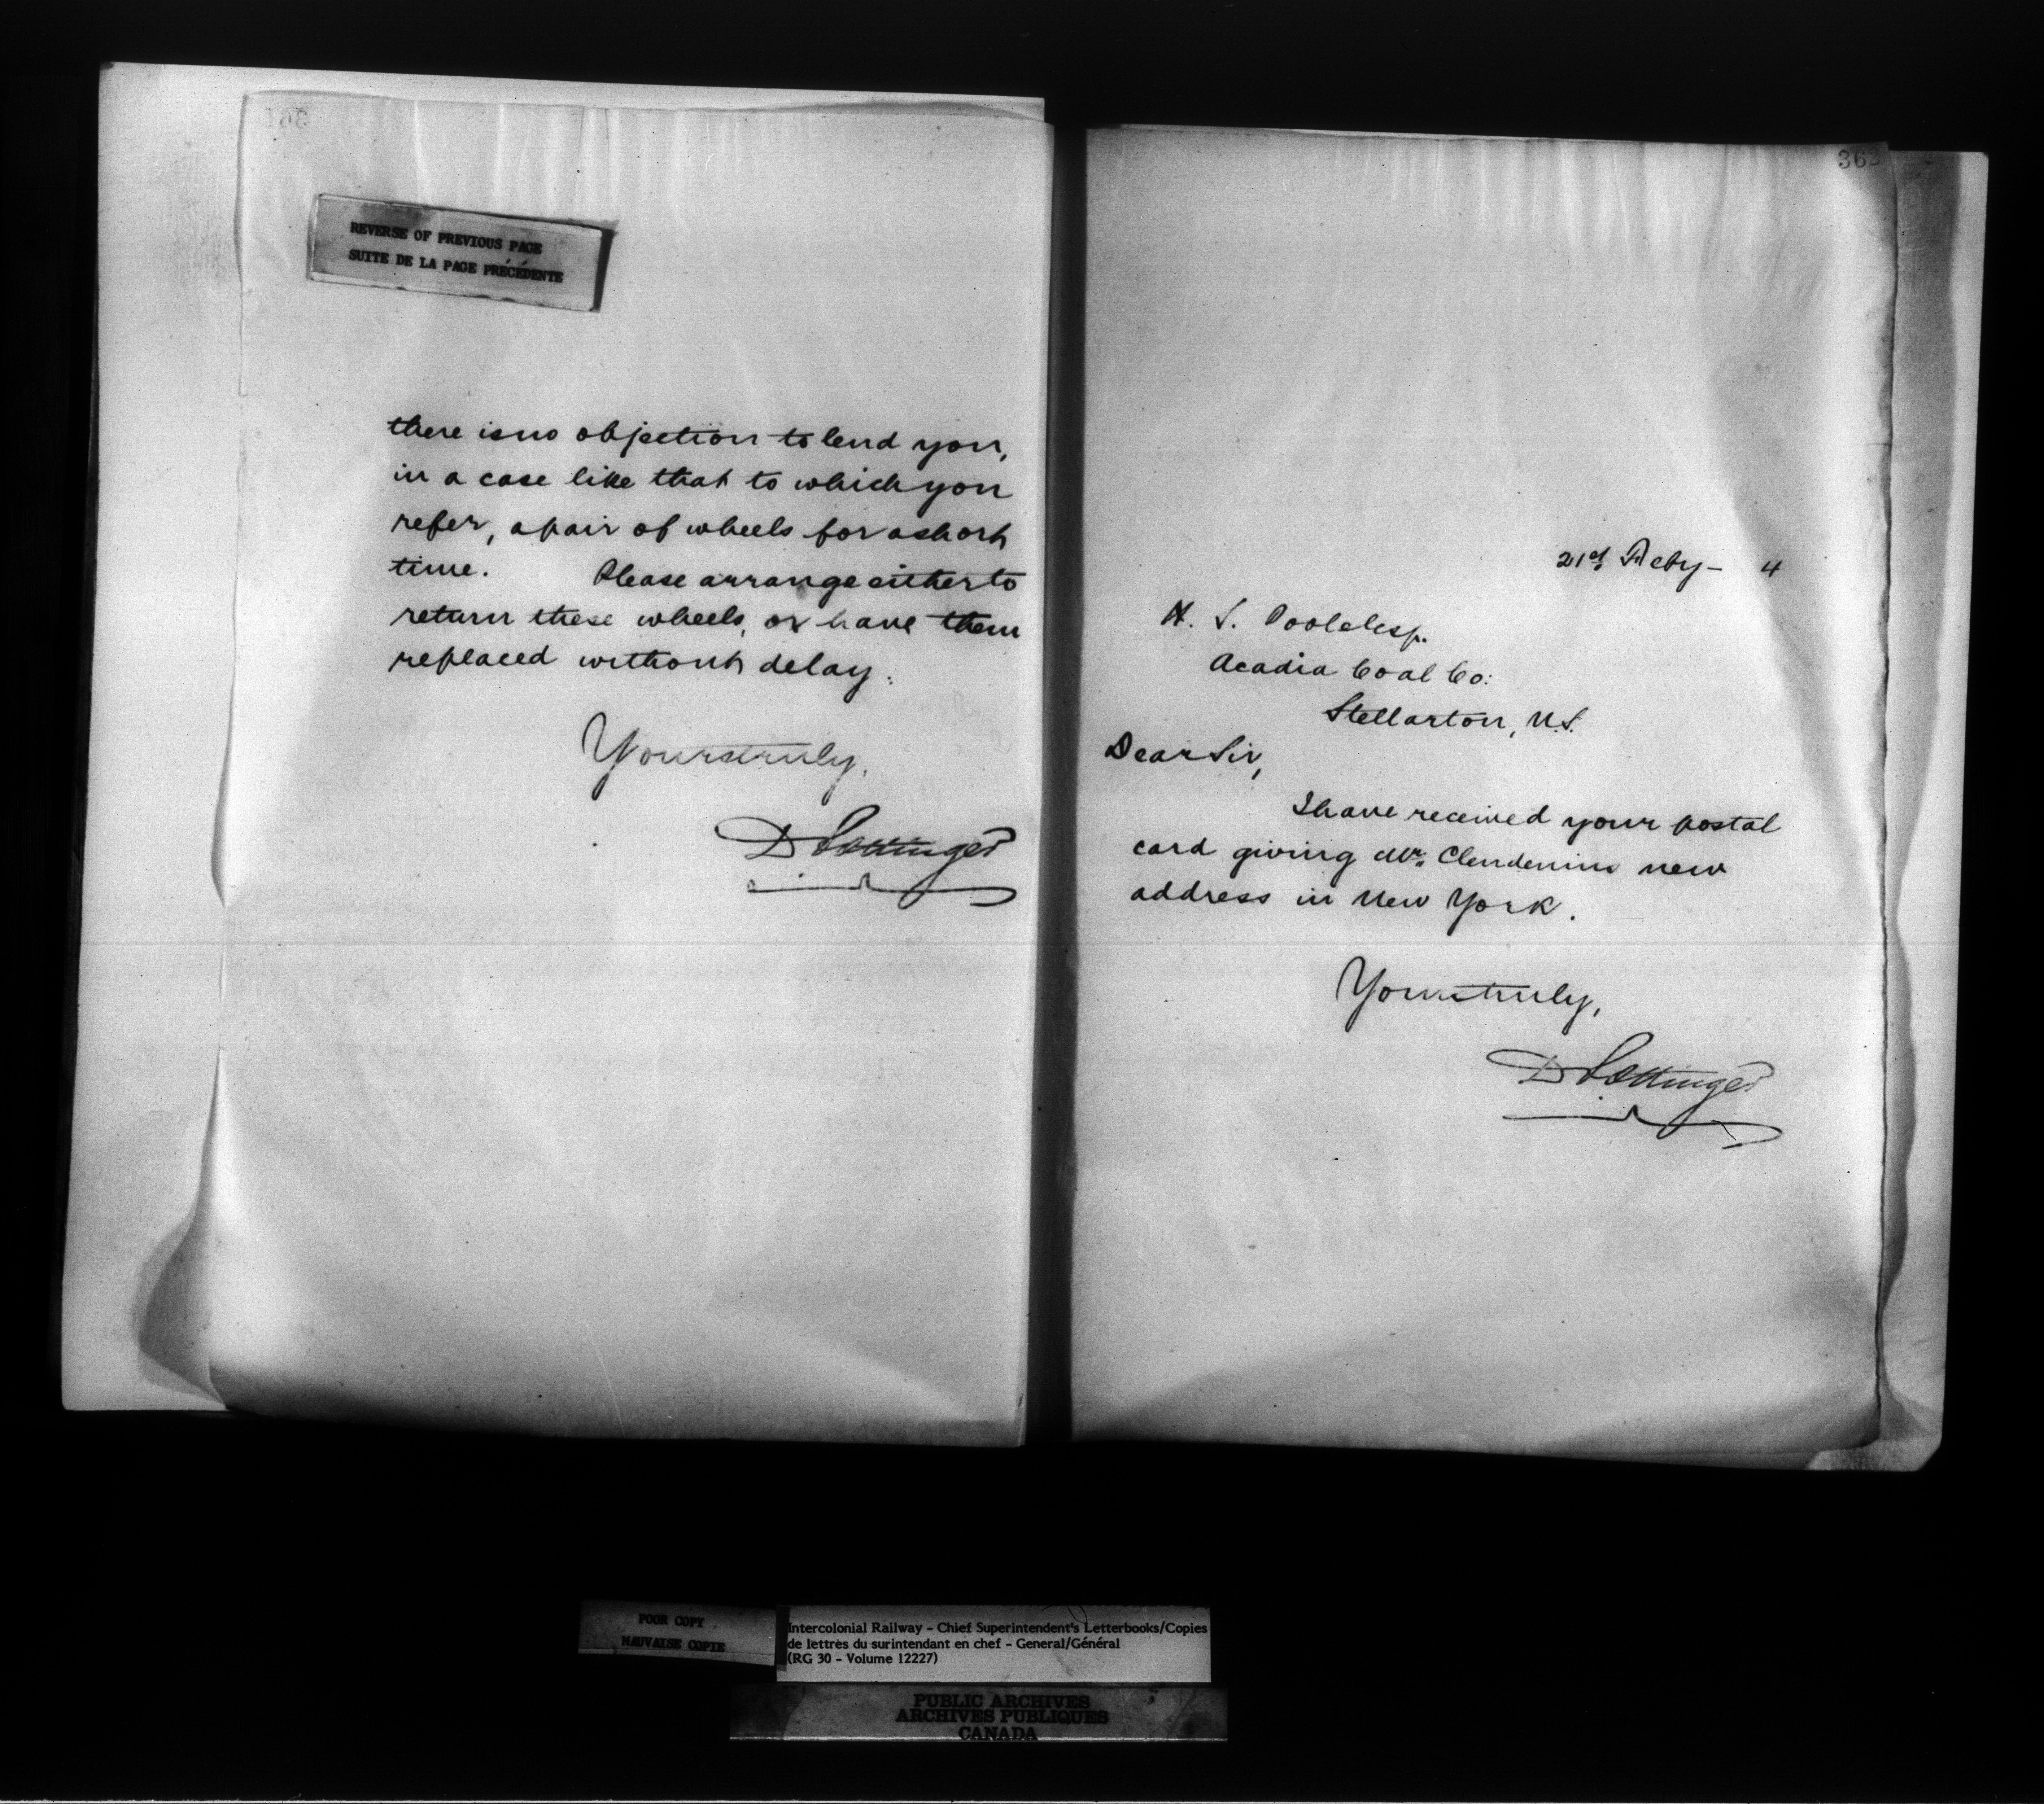 361
REVERSE OF PREVIOUS PAGE
SUITE DE LA PAGE PRÉCÉDENTE
there is no objection to lend you,
in a case like that to which you
refer, a pair of wheels for a short
time. Please arrange either to
return these wheels, or have them
replaced without delay.
Yours truly,
D Pottinger
36
21st Feby - 4
H. S. Poole Esq.
Acadia Coal Co:
Stellarton, N.S.
Dear Sir,
I have received your postal
card giving Mr. Clendenins new
address in New York.
Yours truly,
D Pottinger
POOR COPY
MAUVAISE COPIE
Intercolonial Railway - Chief Superintendent's Letterbooks/Copies
de lettres du surintendant en chef - General/Général
(RG 30 - Volume 12227)
PUBLIC ARCHIVES
ARCHIVES PUBLIQUES
CANADA